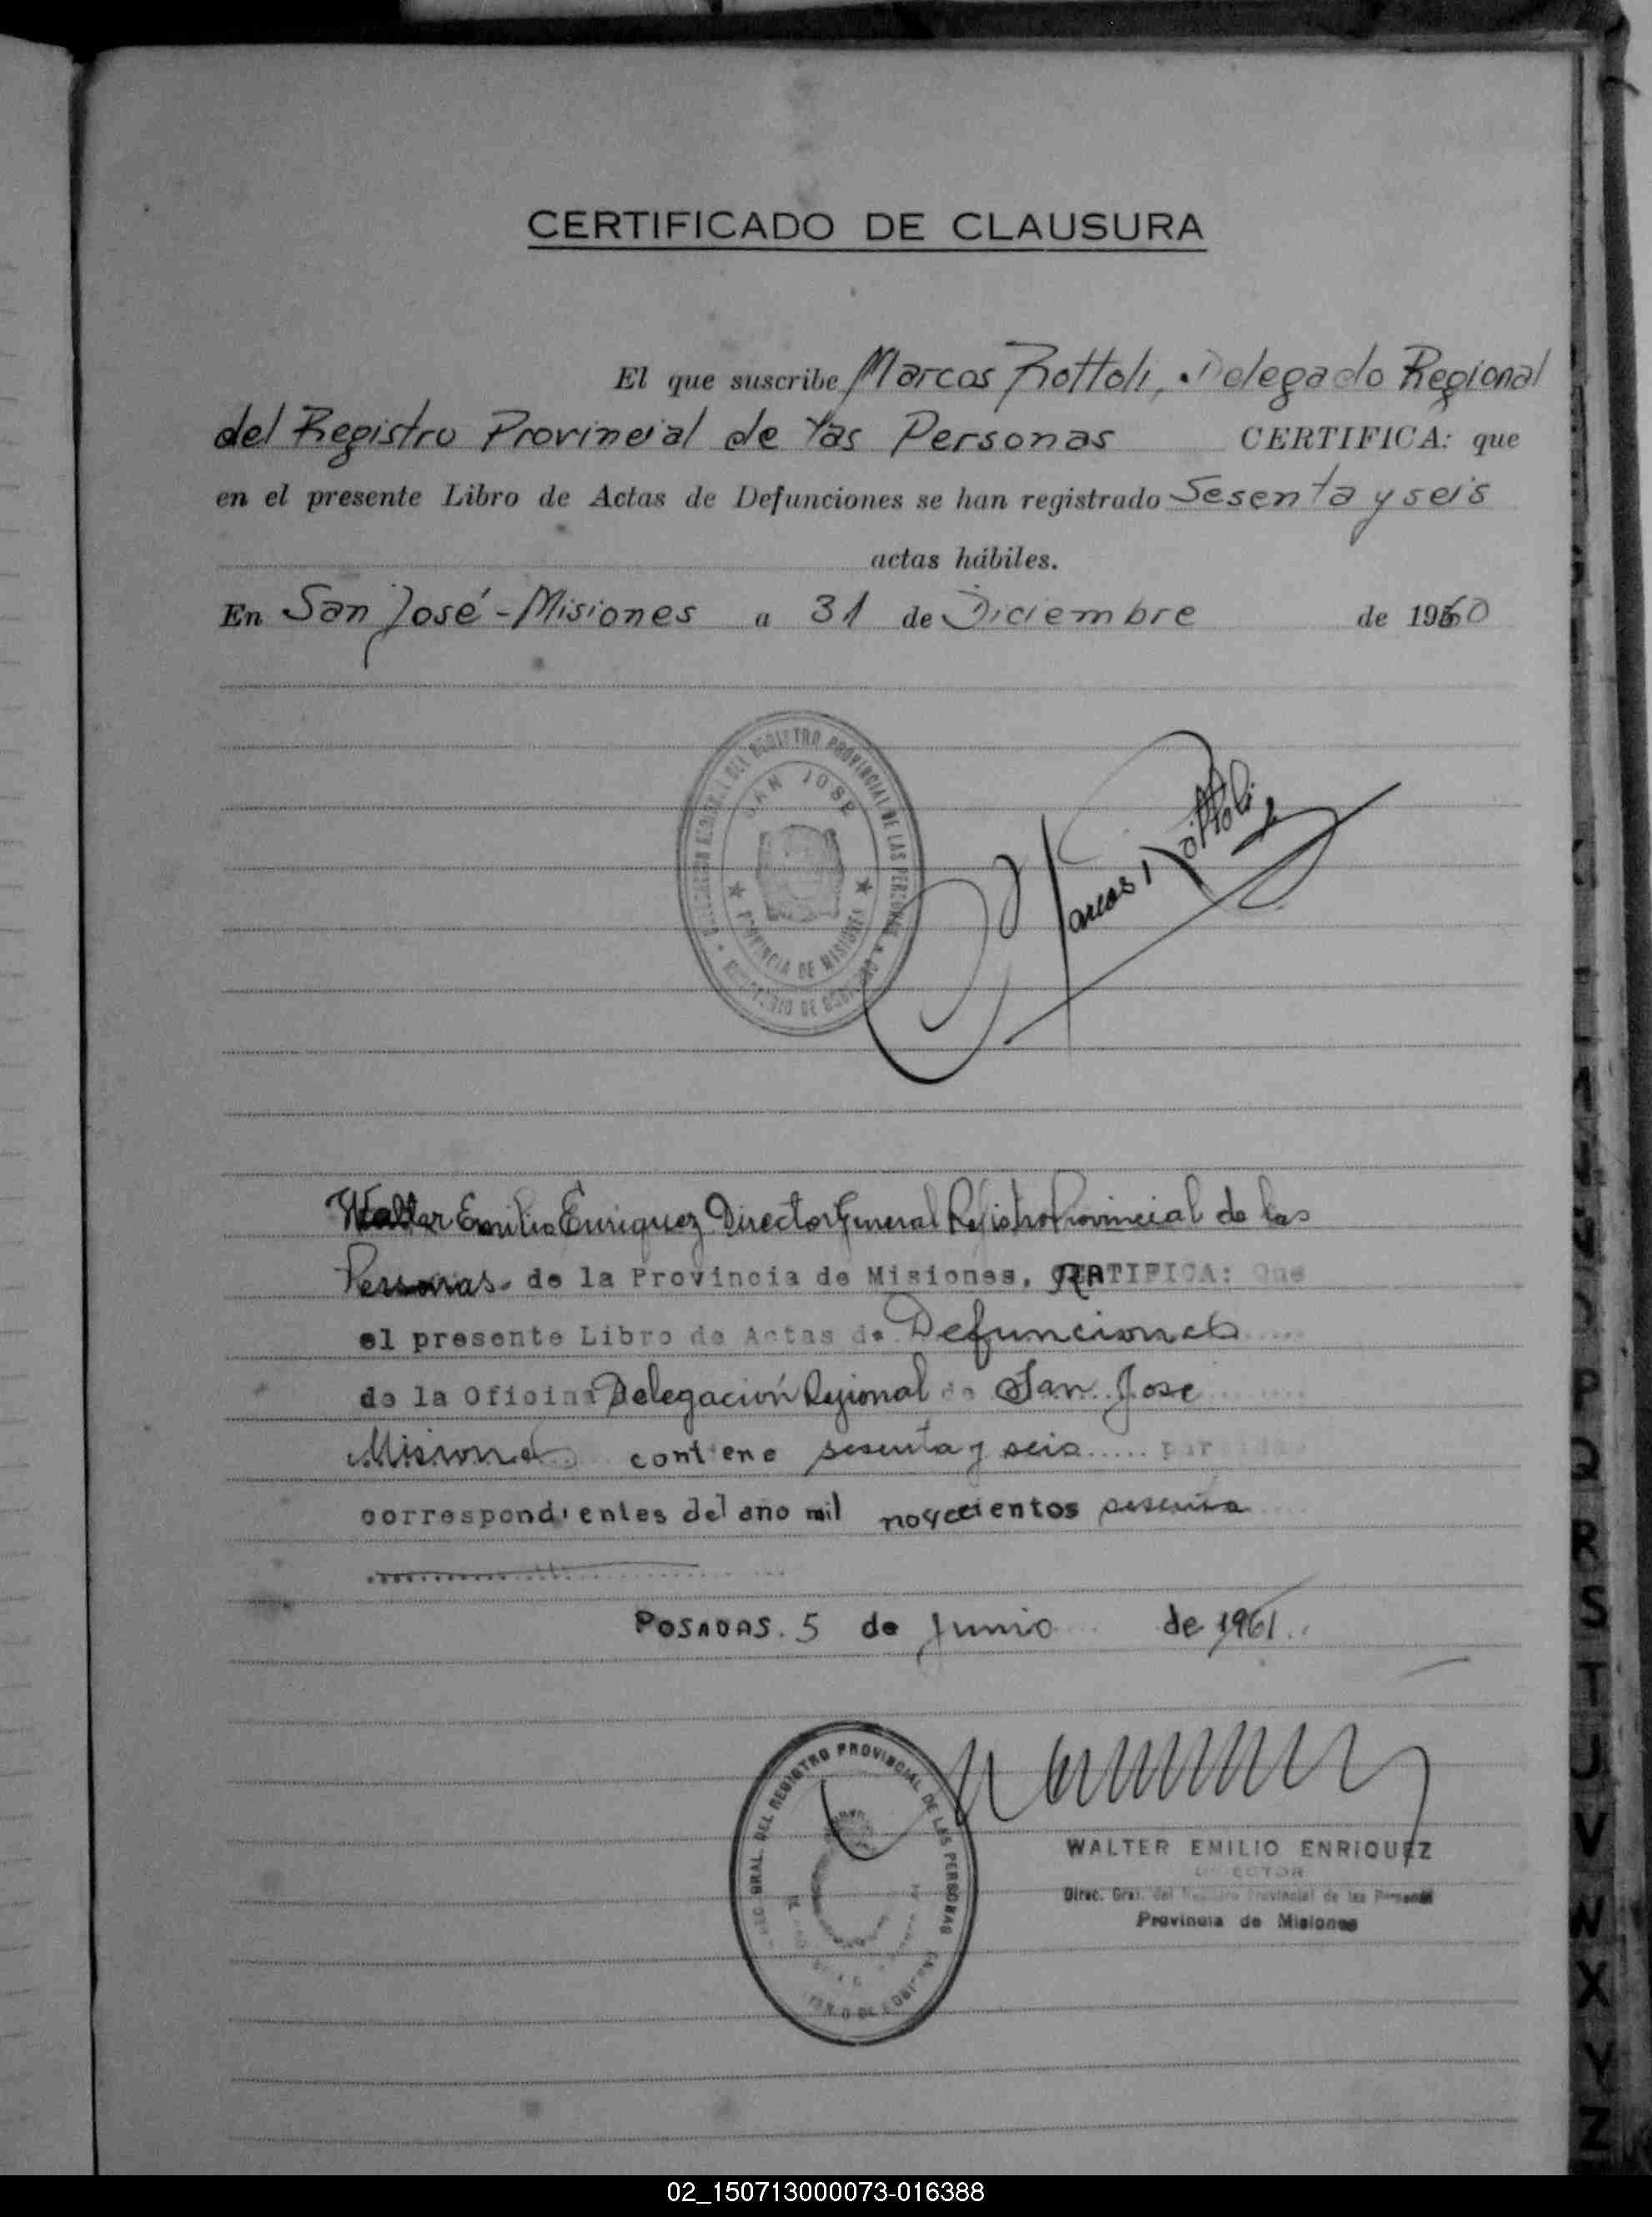 CERTIFICADO DE CLAUSURA
El que suscribe Marcos Rottoli, Delegado Regional
del Registro Provincial de las Personas CERTIFICA: que
en el presente Libro de Actas de Defunciones se han registrado Sesenta y seis
actas hábiles.
En San José - Misiones a 31 de Diciembre de 1960
DELEGACION REGIONAL DEL REGISTRO PROVINCIAL DE LAS PERSONAS
SAN JOSE
PROVINCIA DE MISIONES
MINISTERIO DE GOBIERNO
Marcos Rottoli
Walter Emilio Enriquez Director General Registro Provincial de las
Personas de la Provincia de Misiones, CERTIFICA: Que
el presente Libro de Actas de Defunciones
de la Oficina Delegación Regional de San Jose
Misiones contiene sesenta y seis partidas
correspondientes del año mil novecientos sesenta
POSADAS. 5 de Junio de 1961
GRAL. DEL REGISTRO PROVINCIAL DE LAS PERSONAS
WALTER EMILIO ENRIQUEZ
DIRECTOR
Direc. Gral. del Registro Provincial de las Personas
Provincia de Misiones
P
Q
R
S
T
U
V
W
X
Y
Z
02_150713000073-016388